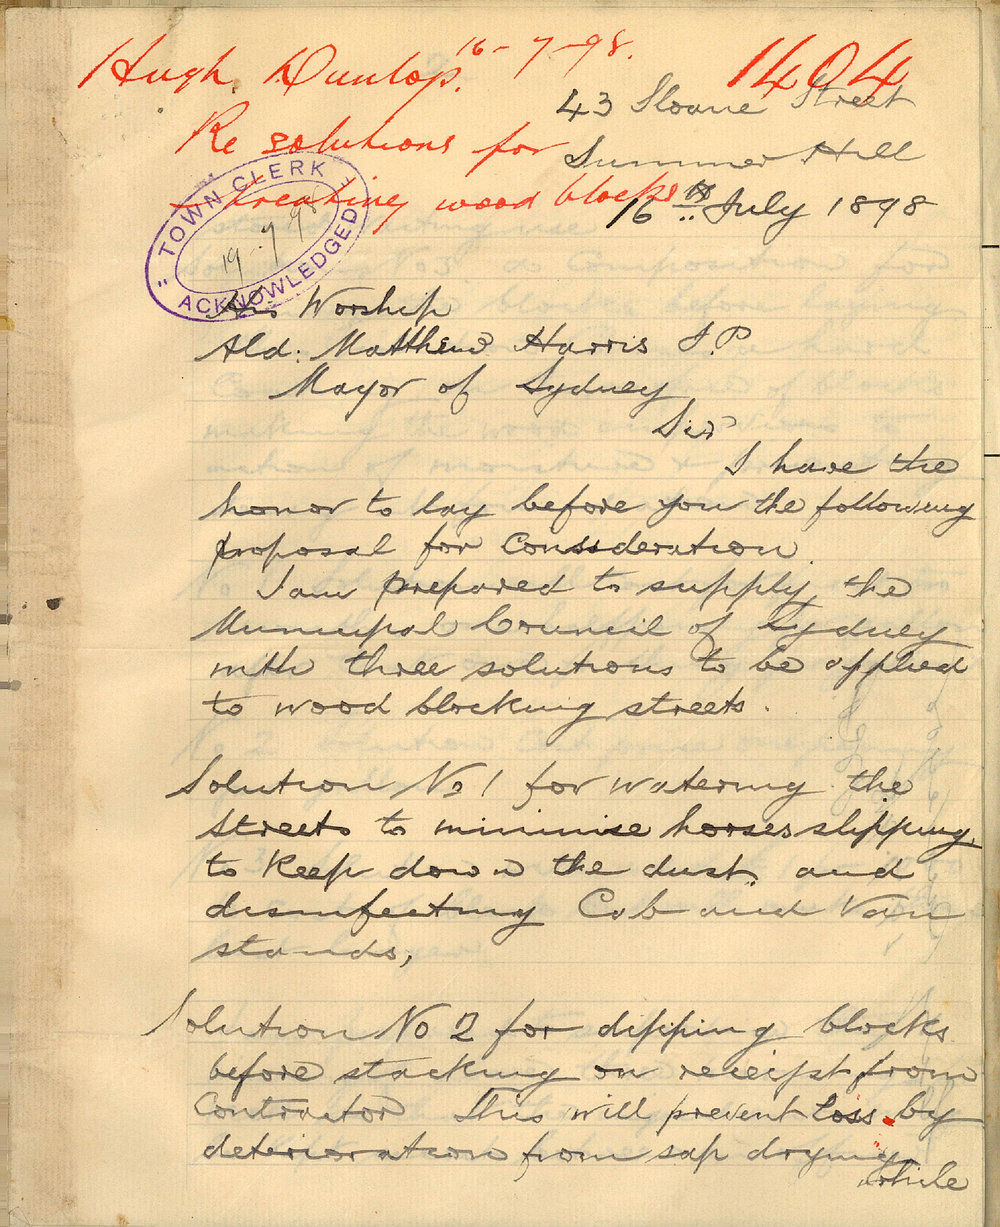 Hugh. Dunlop. 16-7-98.
1404
Re solutions for
treating wood blocks
43 Sloane Street
Summer Hill
16th July 1898
"TOWN CLERK"
19.7.98
ACKNOWLEDGED
His Worship
Ald: Matthew Harris J.P
Mayor of Sydney
Sir
I have the
honor to lay before you the following
proposal for consideration
I am prepared to supply the
Municipal Council of Sydney
with three solutions to be applied
to wood blocking streets.
Solution No 1 for watering the
streets to minimise horses slipping,
to keep down the dust, and
disinfecting Cab and Van
stands,
Solution No 2 for dipping blocks
before stacking on receipt from
Contractor This will prevent loss by
deterioration from sap drying
while